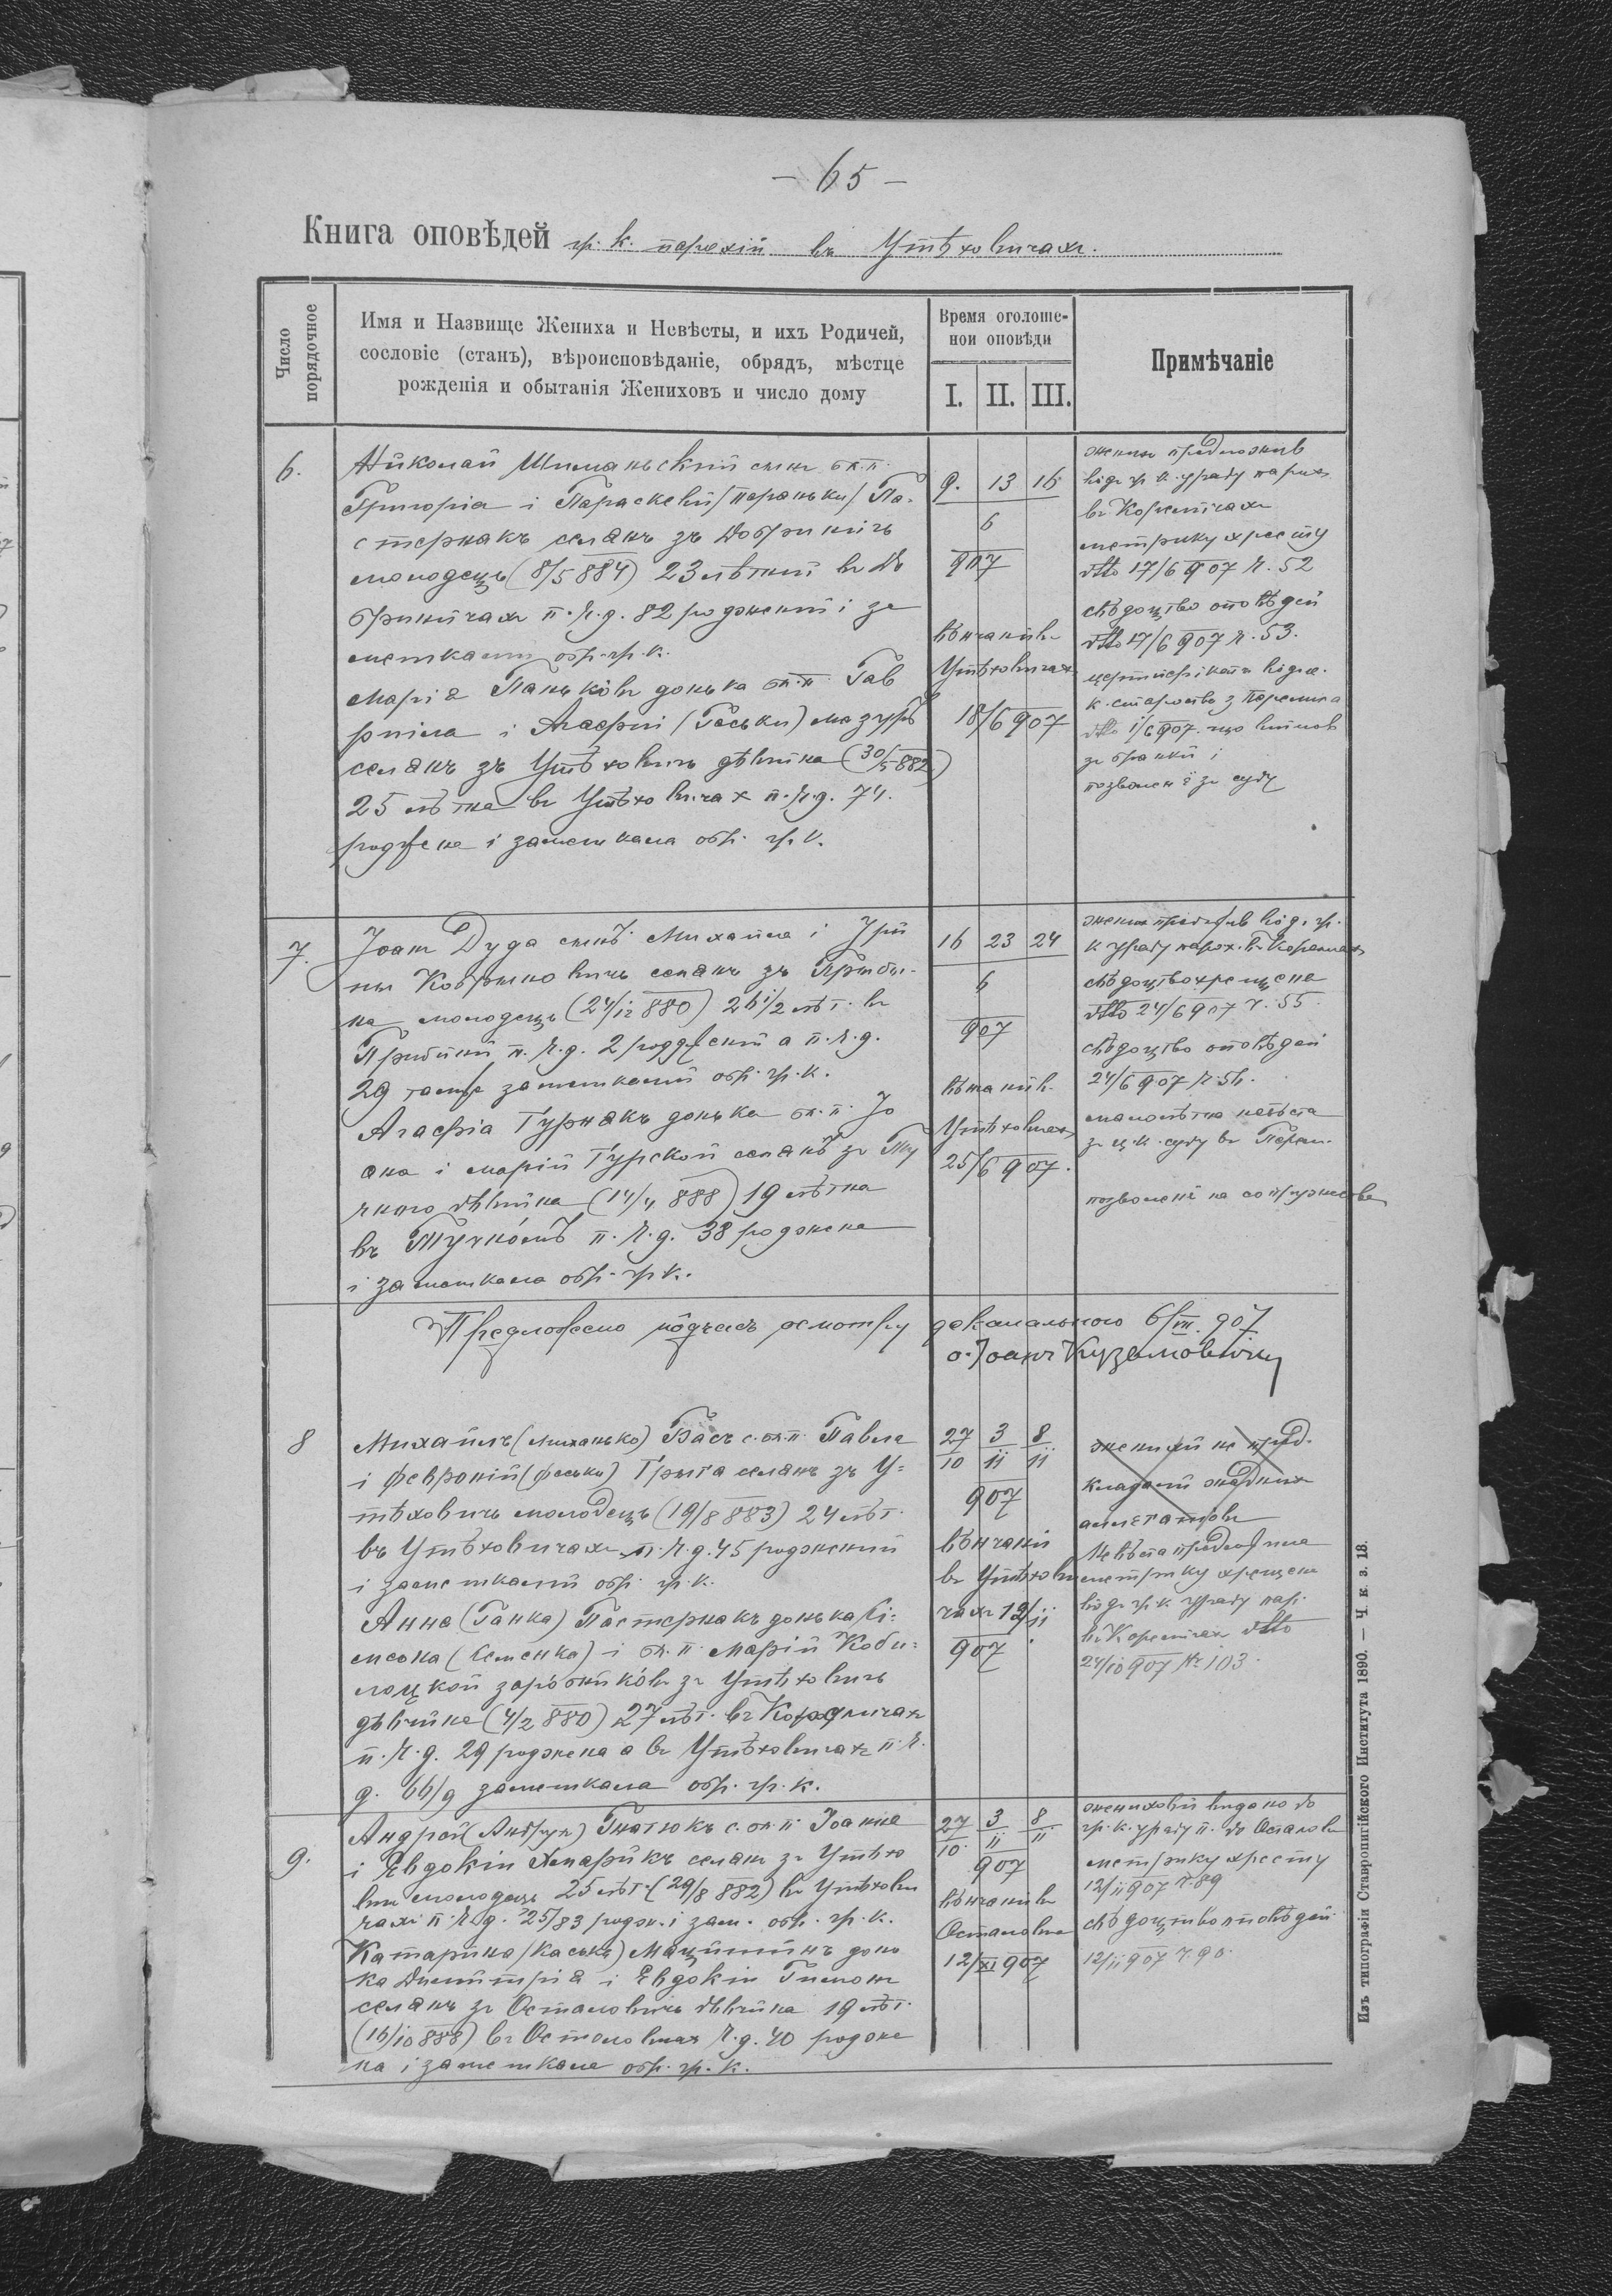 - 65 -
Книга оповѣдей гр. к. парохіи въ Утѣховичахъ.
Число порядочное
Имя и Назвище Жениха и Невѣсты, и ихъ Родичей,
сословіе (станъ), вѣроисповѣданіе, обрядъ, мѣстце
рожденія и обытанія Жениховъ и число дому
Время оголоше-
нои оповѣди
I. II. III.
Примѣчаніе
6.
Николай Шиманьскій сынъ бл. п.
Григорія і Параскевіи /Параньки/ Па-
стернакъ селянъ зъ Добряничъ
молодецъ (8/5 884) 23 лѣтній въ До
бряничахъ п. ч. д. 82 родженый і за
мешкалый обр. гр. к.
Марія Паньківъ донька бл. п. Гав
рила і Агафіи (Гаськи) Мазуръ
селянъ зъ Утѣховичъ дѣвиця (30/5 882)
25 лѣтна въ Утѣховичах п. ч. д. 74.
роджена і замешкала обр. гр. к.
9. 13 16
6
907
вѣнчаній въ
Утѣховичах
18/6 907
жених предложив
від гр. к. уряду парох.
въ Кореличах
метрику хресту
dtto 17/6 907 ч. 52
свѣдоцтво оповѣдей
dtto 17/6 907 ч. 53.
к. староства з Перемишл
dtto 1/6 907 що
позволенє за суду
7.
Іоан Дуда сынъ Михайла і Ири
ны селянъ зъ Прибы-
на молодецъ (24/12 880) 26 1/2 лѣт. въ
Прибыни п. ч. д. 2 родженый а п. ч. д.
29 тамже замешкалый обр. гр. к.
Агафія Гурнякъ донька бл. п. Іо
ана і Маріи Турской селянъ зъ Ту
чного дѣвиця (14/4 888) 19 лѣтна
въ Тучнôмъ п. ч. д. 38 роджена
і замешкала обр. гр. к.
16 23 24
6
907
Утѣховичах
25/6 907.
жених предложив від. гр.
к. уряду парох. въ Кореличах
свѣдоцтво хрещеня
dtto 24/6 907 ч. 55.
свѣдоцтво оповѣдей
24/6 907 ч. 56.
малолѣтна невѣста
зъ ц. к. суду въ Перем.
позволенє на сопружество
Предложено пôдчасъ осмотру деканального 6/VII. 907
о. Іоанъ Кузьмовичъ
8
Михаилъ (Миханько) Басъ с. бл. п. Павла
і Февроніи (Феськи) Грыга селянъ зъ У-
тѣховичъ молодецъ (19/8 883) 24 лѣт.
въ Утѣховичахъ п. ч. д. 45 родженый
і замешкалый обр. гр. к.
Анна (Ганка) Пастернакъ донька Сі-
меона (Семенка) і бл. п. Маріи Коби-
лецкой зарôбникôвъ зъ Утѣховичъ
дѣвиця (4/2 880) 27 лѣт. въ Кореличах
п. ч. д. 29 роджена а въ Утѣховичах п. ч.
д. 66/9 замешкала обр. гр. к.
27 3 8
10 11 11
907
вѣнчаній
въ Утѣхови
чахъ 12/11
907
жених не пред.
кладав жадних
алегатôвъ
Невѣста предложила
метрику хрещеня
від гр. к. уряду пар.
въ Кореличах dtto
24/10 907 № 103.
9.
Андрей (Андрух) Гнатюкъ с. бл. п. Іоанна
і Евдокіи Хмарикъ селян зъ Утѣхо
вич молодецъ 25 лѣт. (29/8 882) въ Утѣхови
чахъ п. ч. д. 25/83 родж. і зам. обр. гр. к.
Катарина /Каська/ Мацишинъ донь
ка Димитрія і Евдокіи
селянъ зъ Осталовичъ дѣвиця 19 лѣт.
(16/10 888) въ Осталовичах ч. д. 40 родже
на і замешкала обр. гр. к.
27 3 8
10 11 11
907
вѣнчаній въ
Осталович
12/XI 907
женихови видано до
гр. к. уряду п. до Осталович
метрику хресту
12/11 907 ч. 89
свѣдоцтво оповѣдей
12/11 907 ч. 90.
Изъ типографіи Ставропигійского Института 1890. — Ч. к. з. 18.